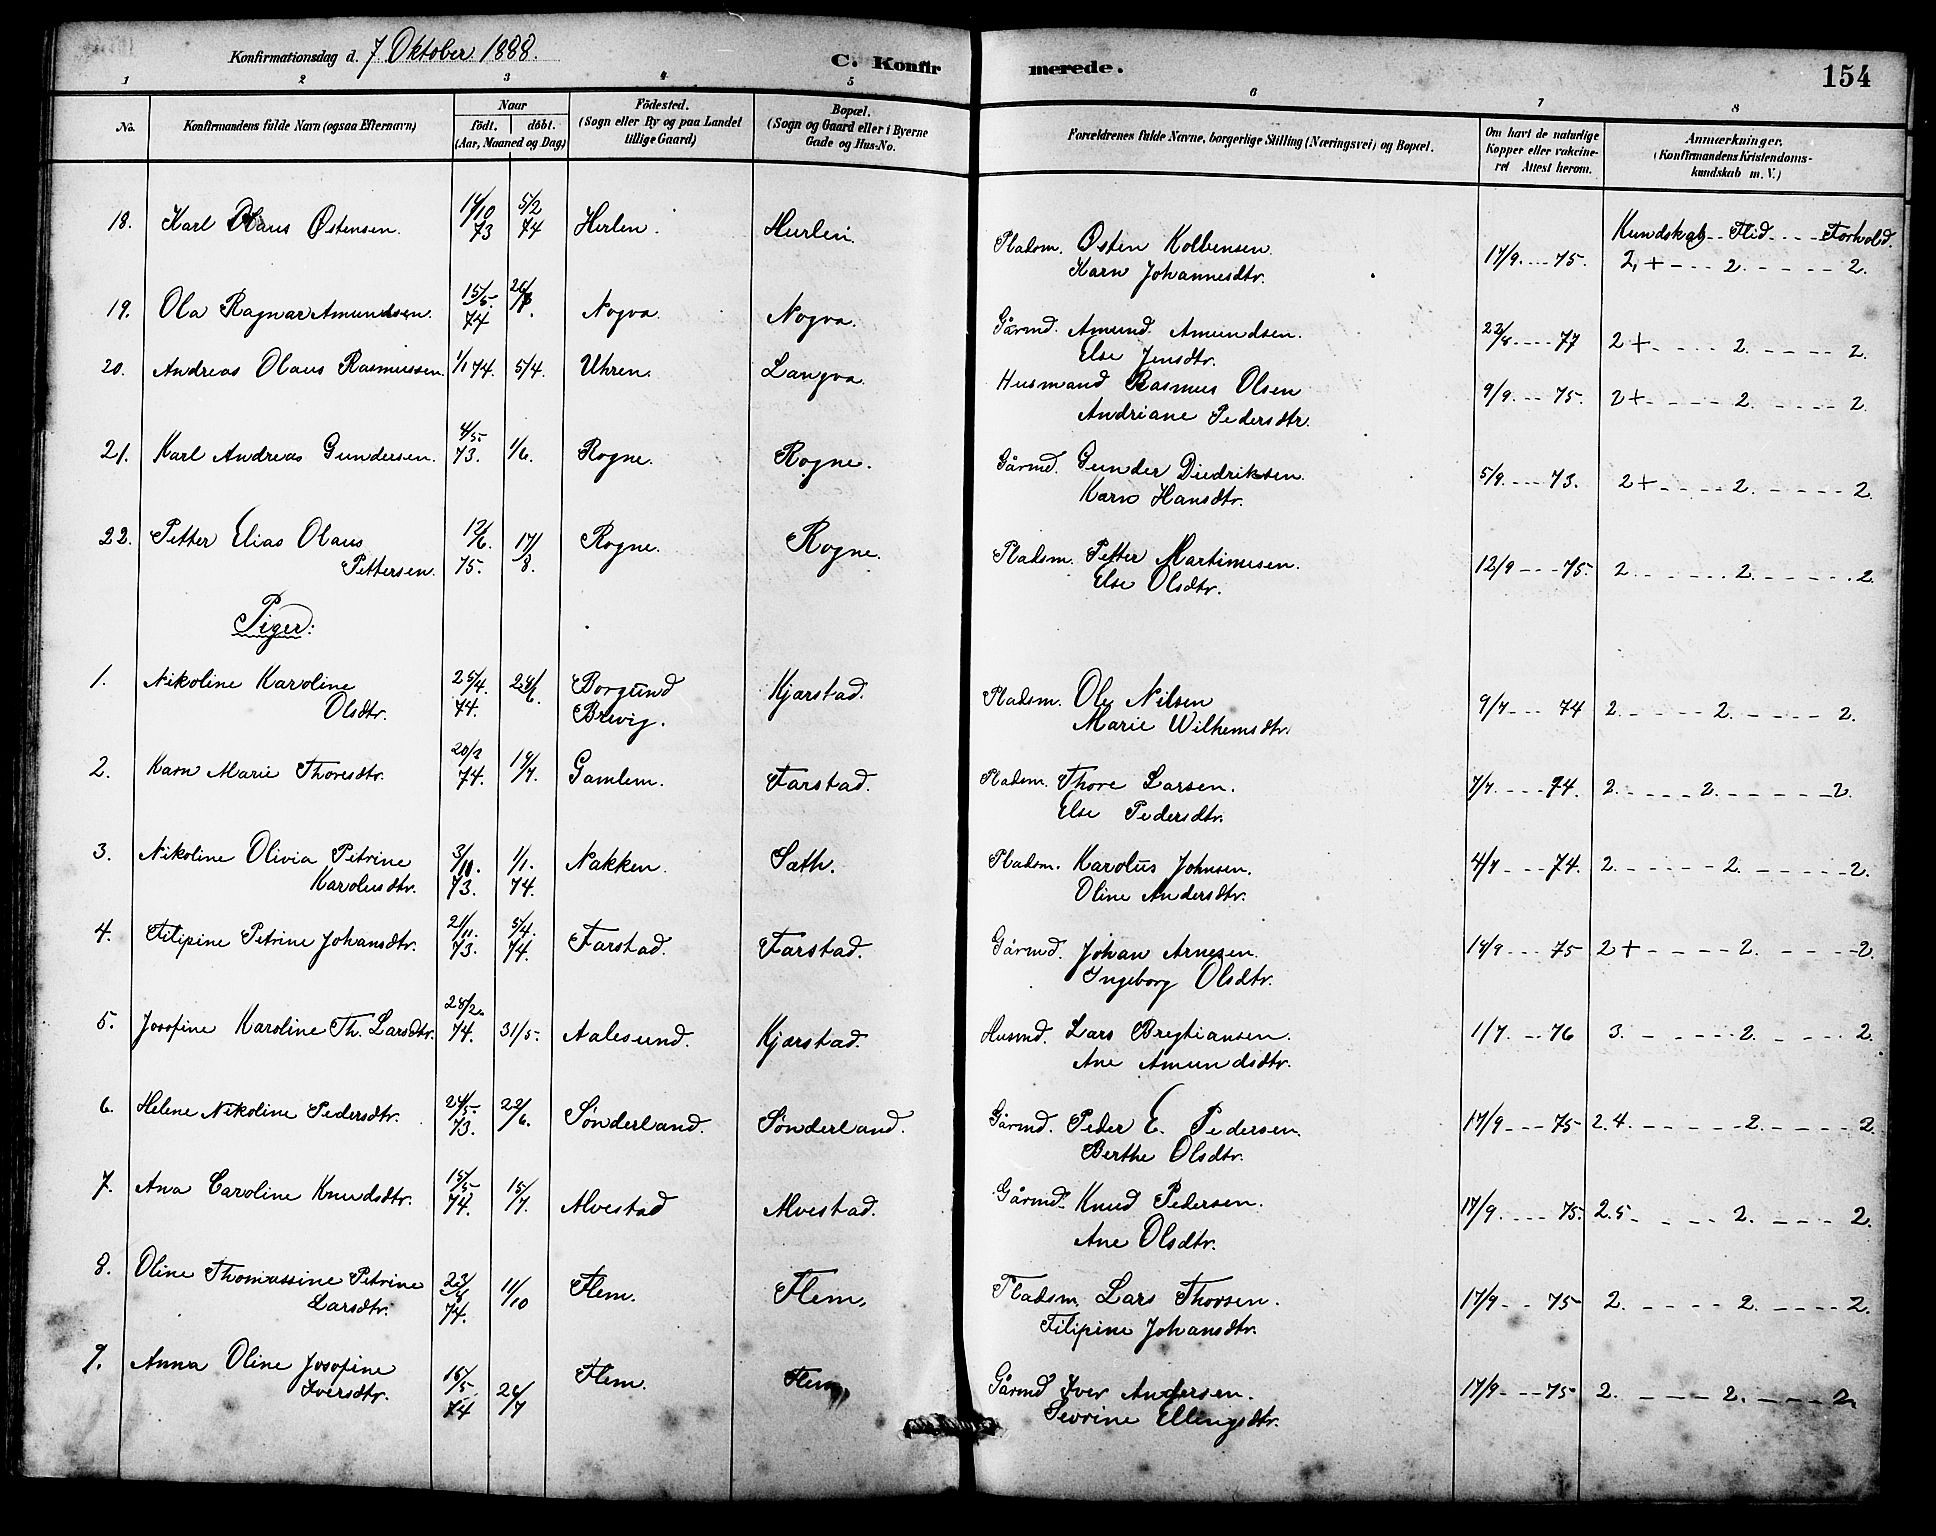 Konfirmationsdag d. 7 Oktober 1888.
C. Konfirmerede.
154
1 2 3 4 5 6 7 8
No. Konfirmandens fulde Navn (ogsaa Efternavn) Naar födt. döbt. (Aar, Maaned og Dag) Födested. (Sogn eller By og paa Landet tillige Gaard) Bopæl. (Sogn og Gaard eller i Byerne Gade og Hus-No. Forældrenes fulde Navne, borgerlige Stilling (Næringsvei) og Bopæl. Om havt de naturlige Kopper eller vakcineret Attest herom. Anmærkninger. (Konfirmandens Kristendomskundskab m. V.)
Kundskab Flid Forhold.
18. Karl Olaus Østensen. 14/10 73 5/2 74 Herlen. Hurlen. Pladsm. Østen Kolbensen. 17/9 75. 2+ 2. 2.
Karn Johannesdtr.
19. Ola Ragnar Amundsen. 15/5. 74 26/7. Nogva. Nogva. Gårmd. Amund Amundsen. 22/8 77 2+ 2. 2.
Else Jensdtr.
20. Andreas Olaus Rasmussen. 1/1 74. 5/4. Uhren. Langva. Husmand Rasmus Olsen 9/9. 75. 2+ 2. 2.
Andriane Pedersdtr.
21. Karl Andreas Gundersen. 4/5 73. 1/6. Rogne. Rogne. Gårmd. Gunder Diedriksen. 5/9. 73. 2+ 2. 2.
Karn Hansdtr.
22. Petter Elias Olaus 12/6. 75. 17/8. Rogne. Rogne. Pladsm. Petter Martinusen. 12/9 75. 2. 2. 2.
Pettersen. Else Olsdtr.
Piger:
1. Nikoline Karoline 25/4. 74. 28/6. Borgund Kjærstad. Pladsm. Ole Nilsen 9/7 74 2. 2. 2.
Olsdtr. Brevig. Marie Wilhemsdtr.
2. Karn Marie Thoresdtr. 20/2 74. 19/7. Gamlem. Farstad. Pladsm. Thore Larsen. 7/7. 74. 2. 2. 2.
Else Pedersdtr.
3. Nikoline Olivia Petrine 3/10. 73. 1/1. 74. Nakken. Sath. Pladsm. Karolus Johnsen. 4/7 74. 2. 2. 2.
Karolusdtr. Oline Andersdtr.
4. Filipine Petrine Johansdtr. 21/11. 73. 5/4. 74. Farstad. Farstad. Gårmd. Johan Arnesen. 14/9 75 2+ 2. 2.
Ingeborg Olsdtr.
5. Josefine Karoline Th. Larsdtr. 28/2. 74. 31/5. Aalesund. Kjærstad. Husmd. Lars Bregtiansen. 1/7 76 3. 2. 2.
Ane Amundsdtr.
6. Helene Nikoline Pedersdtr. 24/5 73. 22/6. Sønderland. Sønderland. Gårmd. Peder E. Pedersen. 17/9 75 2.4. 2. 2.
Berthe Olsdtr.
7. Ana Caroline Knudsdtr. 15/5 74. 15/7. Alvestad Alvestad. Gårmd. Knud Pedersen. 17/9. 75. 2.5 2. 2.
Ane Olsdtr.
8. Oline Thomassine Petrine 23/8 74. 11/10 Flem. Flem. Pladsm. Lars Thorsen. 17/9 75 2. 2. 2.
Larsdtr. Filipine Johansdtr.
9. Anna Oline Josefine 16/5 74 26/7 Flem. Flem Gårmd Iver Andersen. 17/9 75 2. 2. 2.
Iversdtr. Sevrine Ellingsdtr.